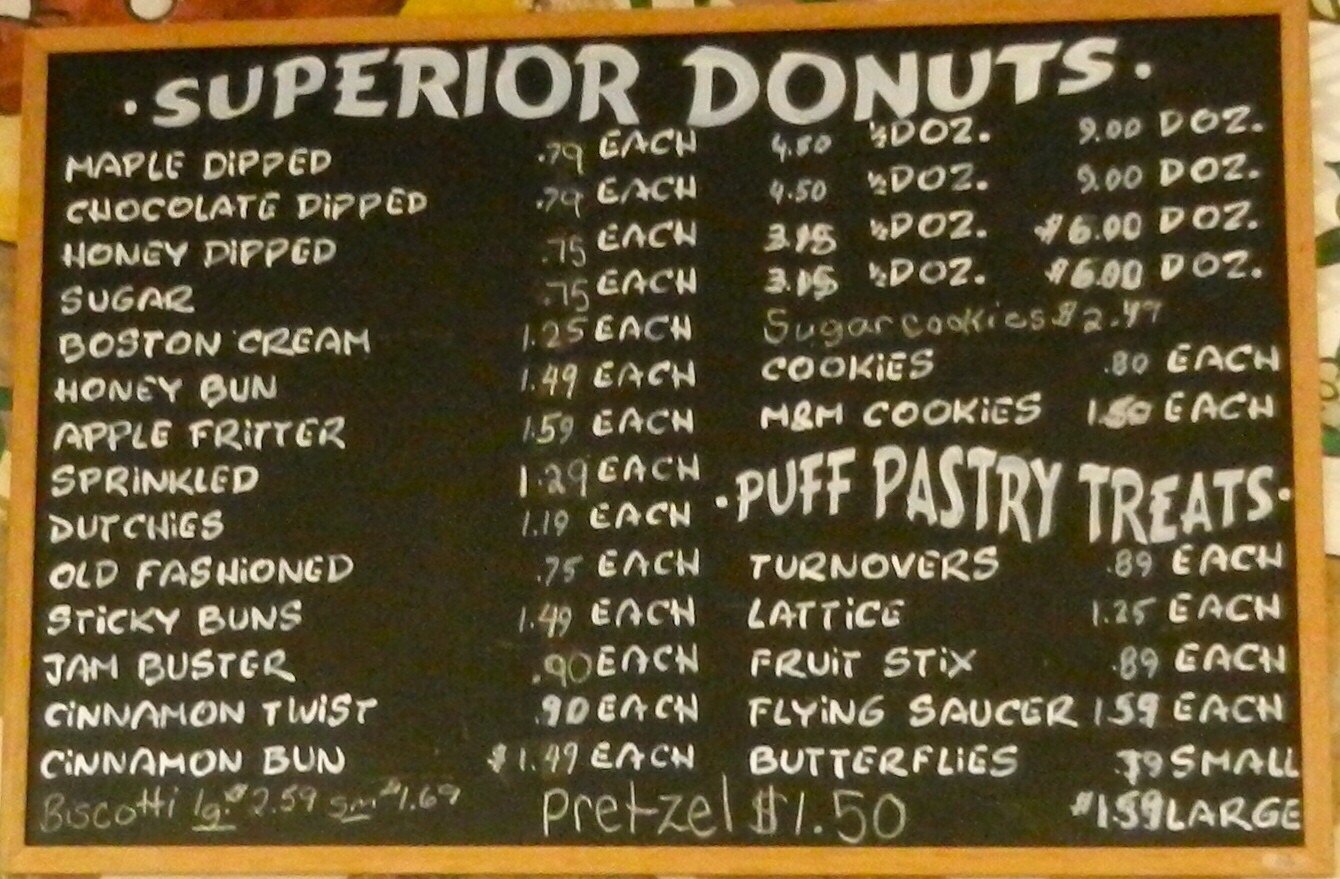 ·SUPERIOR DONUTS·
MAPLE DIPPED .79 EACH 4.50 ½ DOZ. 9.00 DOZ.
CHOCOLATE DIPPED .79 EACH 4.50 ½ DOZ. 9.00 DOZ.
HONEY DIPPED .75 EACH ½ DOZ. $6.00 DOZ.
SUGAR .75 EACH ½ DOZ. $6.00 DOZ.
BOSTON CREAM 1.25 EACH
HONEY BUN 1.49 EACH
APPLE FRITTER 1.59 EACH
SPRINKLED 1.29 EACH
DUTCHIES 1.19 EACH
OLD FASHIONED .75 EACH
STICKY BUNS 1.49 EACH
JAM BUSTER .90 EACH
CINNAMON TWIST .90 EACH
CINNAMON BUN $1.49 EACH
Biscotti lg. $2.59 sm $1.69
Pretzel $1.50
Sugar cookies
COOKIES .80 EACH
M&M COOKIES EACH
·PUFF PASTRY TREATS·
TURNOVERS .89 EACH
LATTICE 1.25 EACH
FRUIT STIX .89 EACH
FLYING SAUCER 1.59 EACH
BUTTERFLIES SMALL
$1.59 LARGE